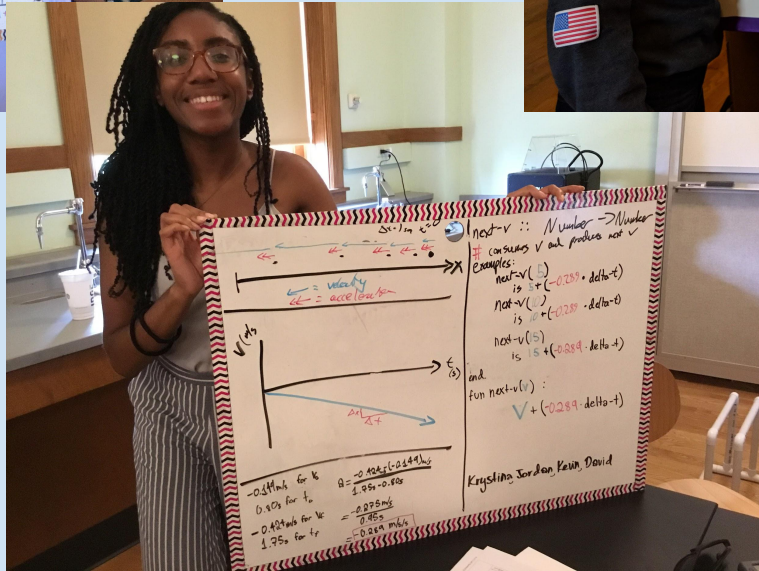 t=0
x
= velocity
= acceleration
V(m/s
t
(s)
Δv
Δt
-0.149m/s for V₀
0.80s for t₀
-0.424m/s for Vf
1.75s for tf
a = -0.424m/s-(-0.149)m/s
1.75s-0.80s
= -0.275m/s
0.95s
= -0.289 m/s/s
next-v :: Number -> Number
# consumes v and produces next v
examples:
next-v(5)
is 5+(-0.289 * delta-t)
next-v(10)
is 10+(-0.289 * delta-t)
next-v(15)
is 15+(-0.289 * delta-t)
end
fun next-v(v) :
V + (-0.289 * delta-t)
Krystina, Jordan, Kevin, David